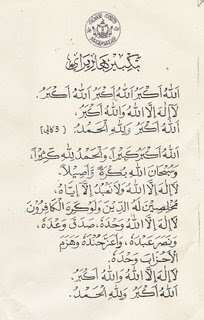 تكبير هاري راي
اَللهُ أَكْبَرُ اَللهُ أَكْبَرُ اَللهُ أَكْبَرُ.
لَا إِلٰهَ إِلَّا اللهُ وَاللهُ أَكْبَرُ.
اَللهُ أَكْبَرُ وَلِلّٰهِ الْحَمْدُ. [٣ كالي]
اَللهُ أَكْبَرُ كَبِيرًا، وَالْحَمْدُ لِلّٰهِ كَثِيرًا،
وَسُبْحَانَ اللهِ بُكْرَةً وَأَصِيلًا.
لَا إِلٰهَ إِلَّا اللهُ وَلَا نَعْبُدُ إِلَّا إِيَّاهُ،
مُخْلِصِينَ لَهُ الدِّينَ وَلَوْ كَرِهَ الْكَافِرُونَ
لَا إِلٰهَ إِلَّا اللهُ وَحْدَهُ، صَدَقَ وَعْدَهُ،
وَنَصَرَ عَبْدَهُ، وَأَعَزَّ جُنْدَهُ وَهَزَمَ
الْأَحْزَابَ وَحْدَهُ.
لَا إِلٰهَ إِلَّا اللهُ وَاللهُ أَكْبَرُ.
اَللهُ أَكْبَرُ وَلِلّٰهِ الْحَمْدُ.